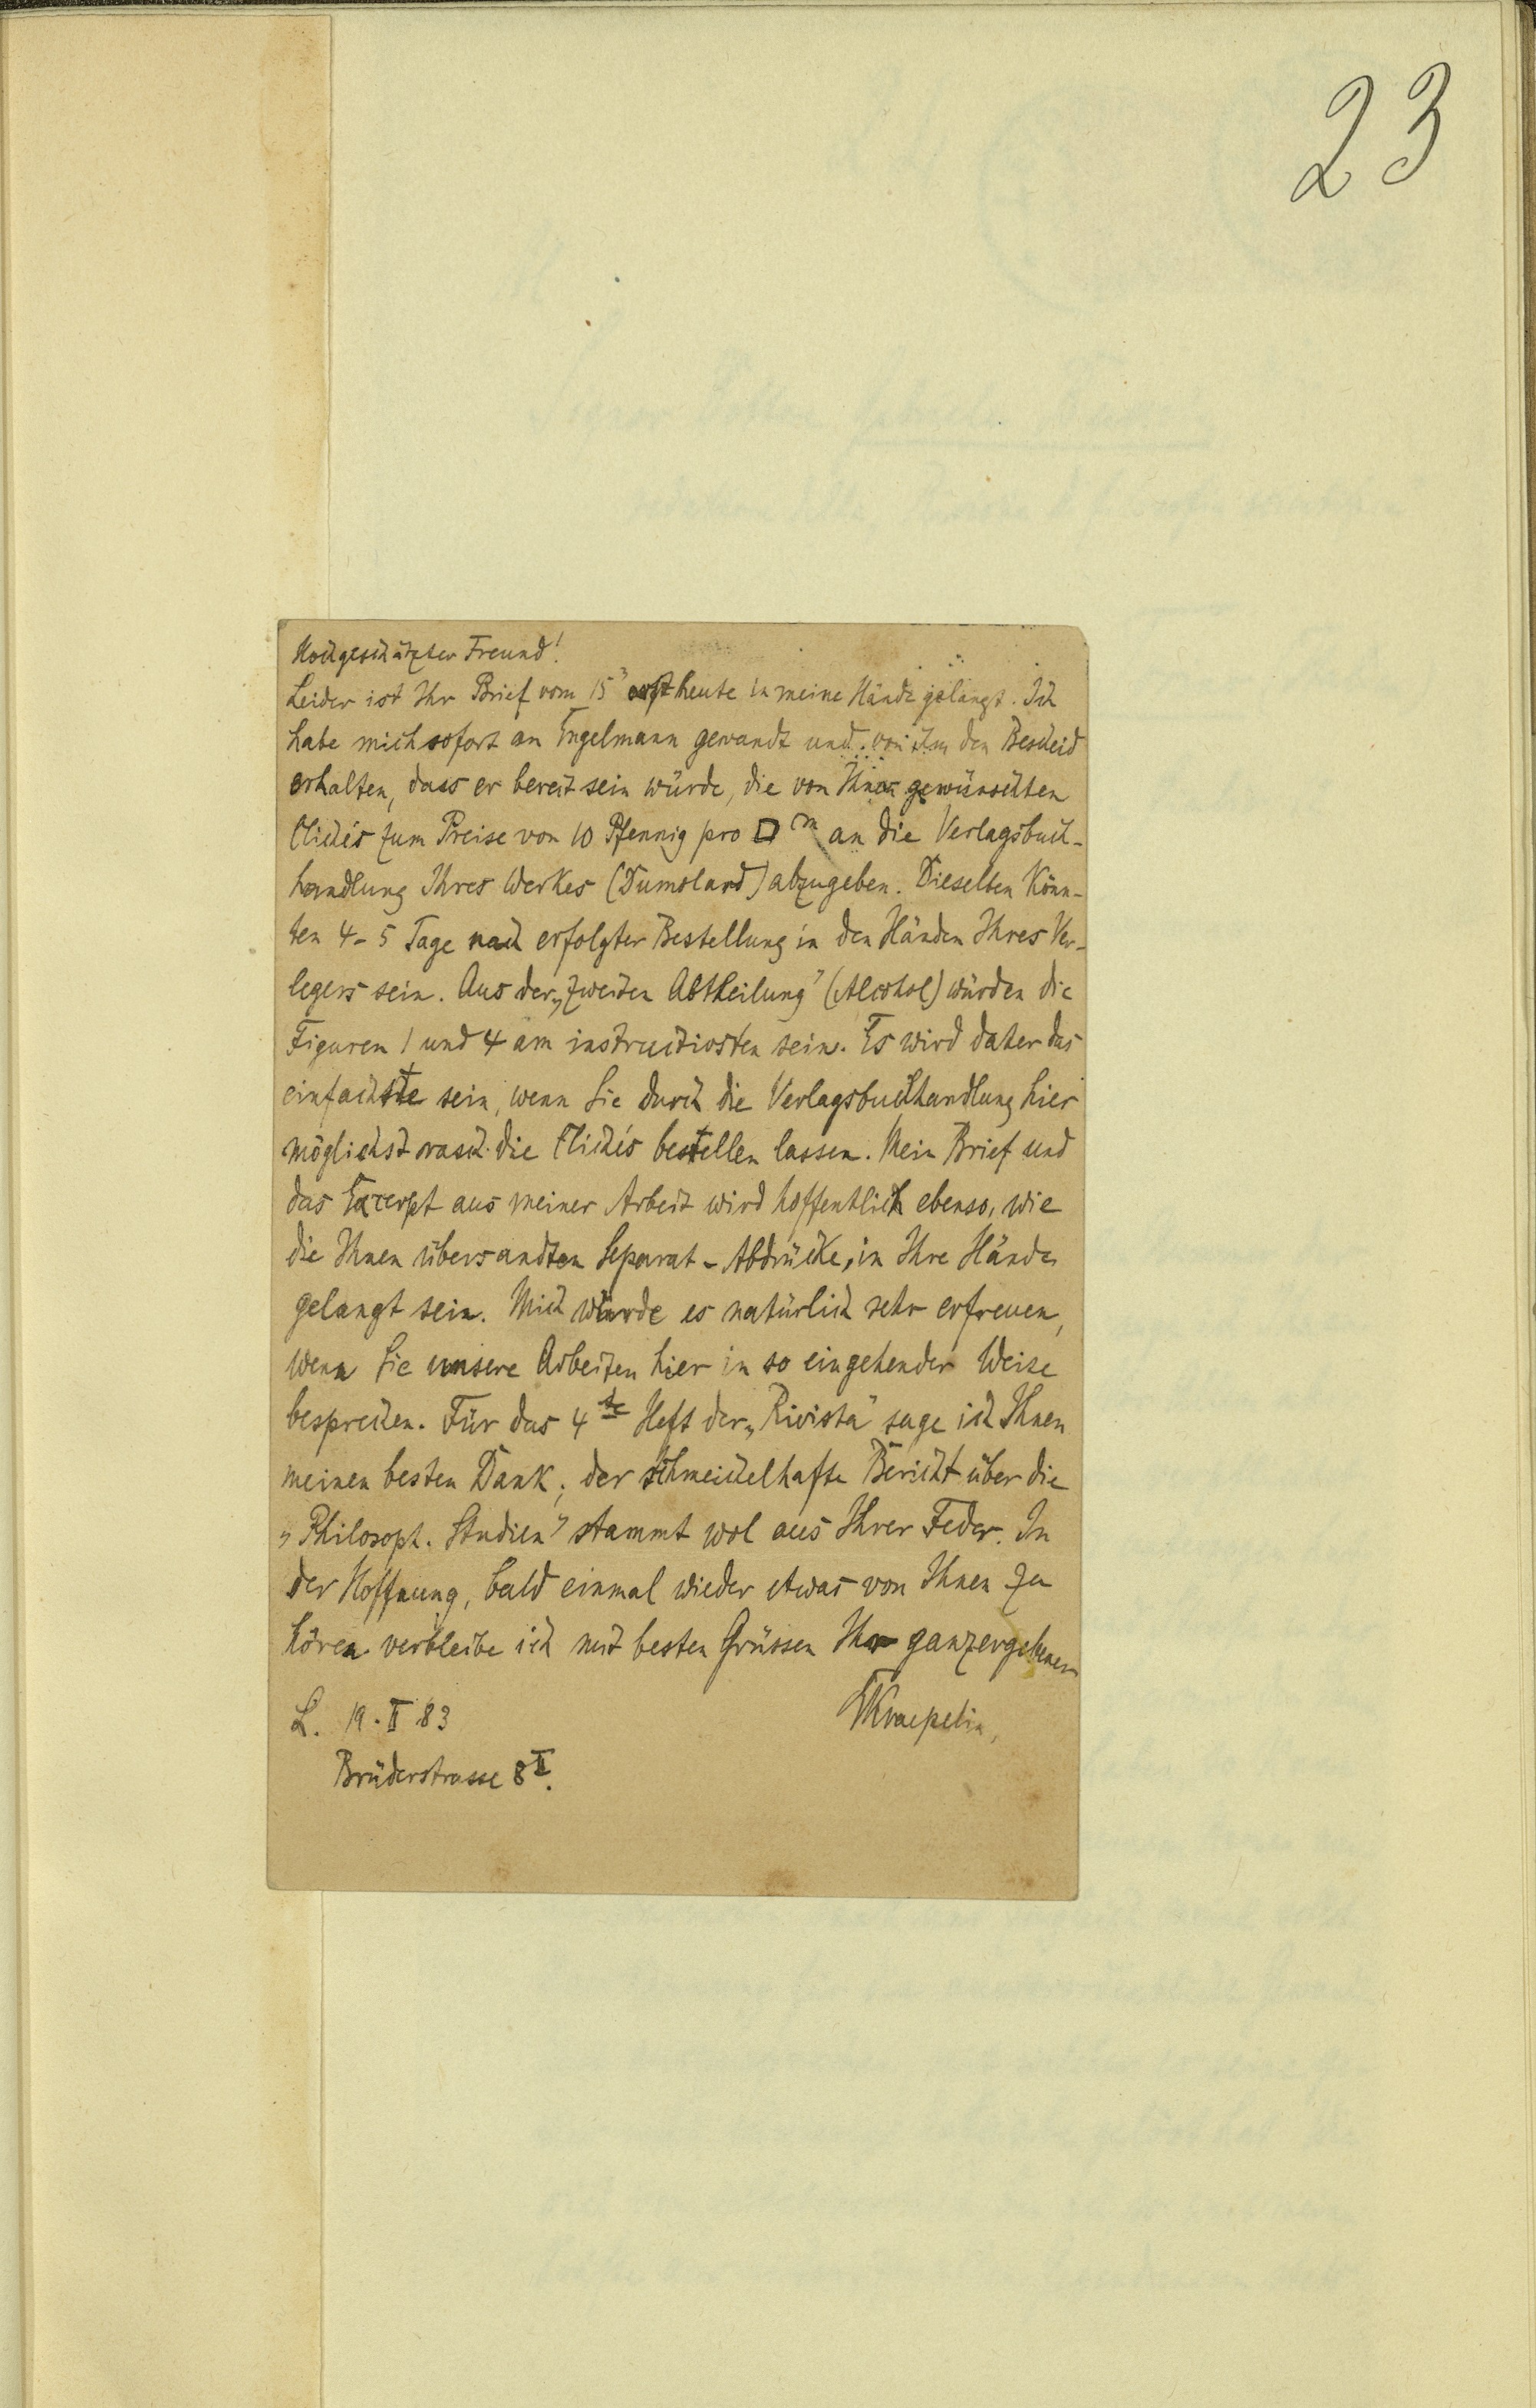 23
Hochgeschätzter Freund!
Leider ist Ihr Brief vom 15 erst heute in meine Hände gelangt. Ich
habe mich sofort an Engelmann gewandt und von ihm den Bescheid
erhalten, dass er bereit sein würde, die von Ihnen gewünschten
Clichés zum Preise von 10 Pfennig pro □ cm an die Verlagsbuch-
handlung Ihres Werkes (Dumolard) abzugeben. Dieselben könn-
ten 4-5 Tage nach erfolgter Bestellung in den Händen Ihres Ver-
legers sein. Aus der „zweiten Abtheilung" (Alcohol) würden die
Figuren 1 und 4 am instructivsten sein. Es wird daher das
einfachste sein, wenn Sie durch die Verlagsbuchhandlung hier
möglichst rasch die Clichés bestellen lassen. Mein Brief und
das Excerpt aus meiner Arbeit wird hoffentlich ebenso, wie
die Ihnen übersandten Separat-Abdrücke, in Ihre Hände
gelangt sein. Mich würde es natürlich sehr erfreuen,
wenn Sie unsere Arbeiten hier in so eingehender Weise
besprechen. Für das 4te Heft der „Rivista" sage ich Ihnen
meinen besten Dank; der schmeichelhafte Bericht über die
„Philosoph. Studien" stammt wol aus Ihrer Feder. In
der Hoffnung, bald einmal wieder etwas von Ihnen zu
hören verbleibe ich mit besten Grüssen Ihr ganz ergebener
EKraepelin,
L. 19. II 83
Brüderstrasse 8 II.